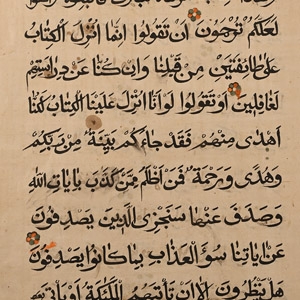 لعلكم ترحمون ان تقولوا انما انزل الكتاب
على طائفتين من قبلنا وان كنا عن دراستهم
لغافلين او تقولوا لو انا انزل علينا الكتاب لكنا
اهدى منهم فقد جاءكم بينة من ربكم
وهدى ورحمة فمن اظلم ممن كذب بايات الله
وصدف عنها سنجزى الذين يصدفون
عن اياتنا سوء العذاب بما كانوا يصدفون
هل ينظرون الا ان تأتيهم الملئكة او يأتى